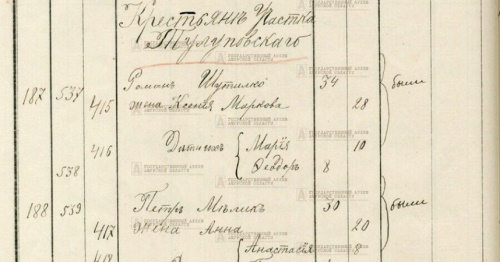 Крестьянъ Участка
Тулуповскаго.
187 537 Романъ Шутилко 34 были
415 жена Ксенія Маркова 28
416 Дѣти ихъ Марія 10
538 Ѳеодоръ 8
188 539 Петръ Мѣликъ 30 были
417 жена Анна 20
418 Анастасія 8
ГОСУДАРСТВЕННЫЙ АРХИВ
АМУРСКОЙ ОБЛАСТИ